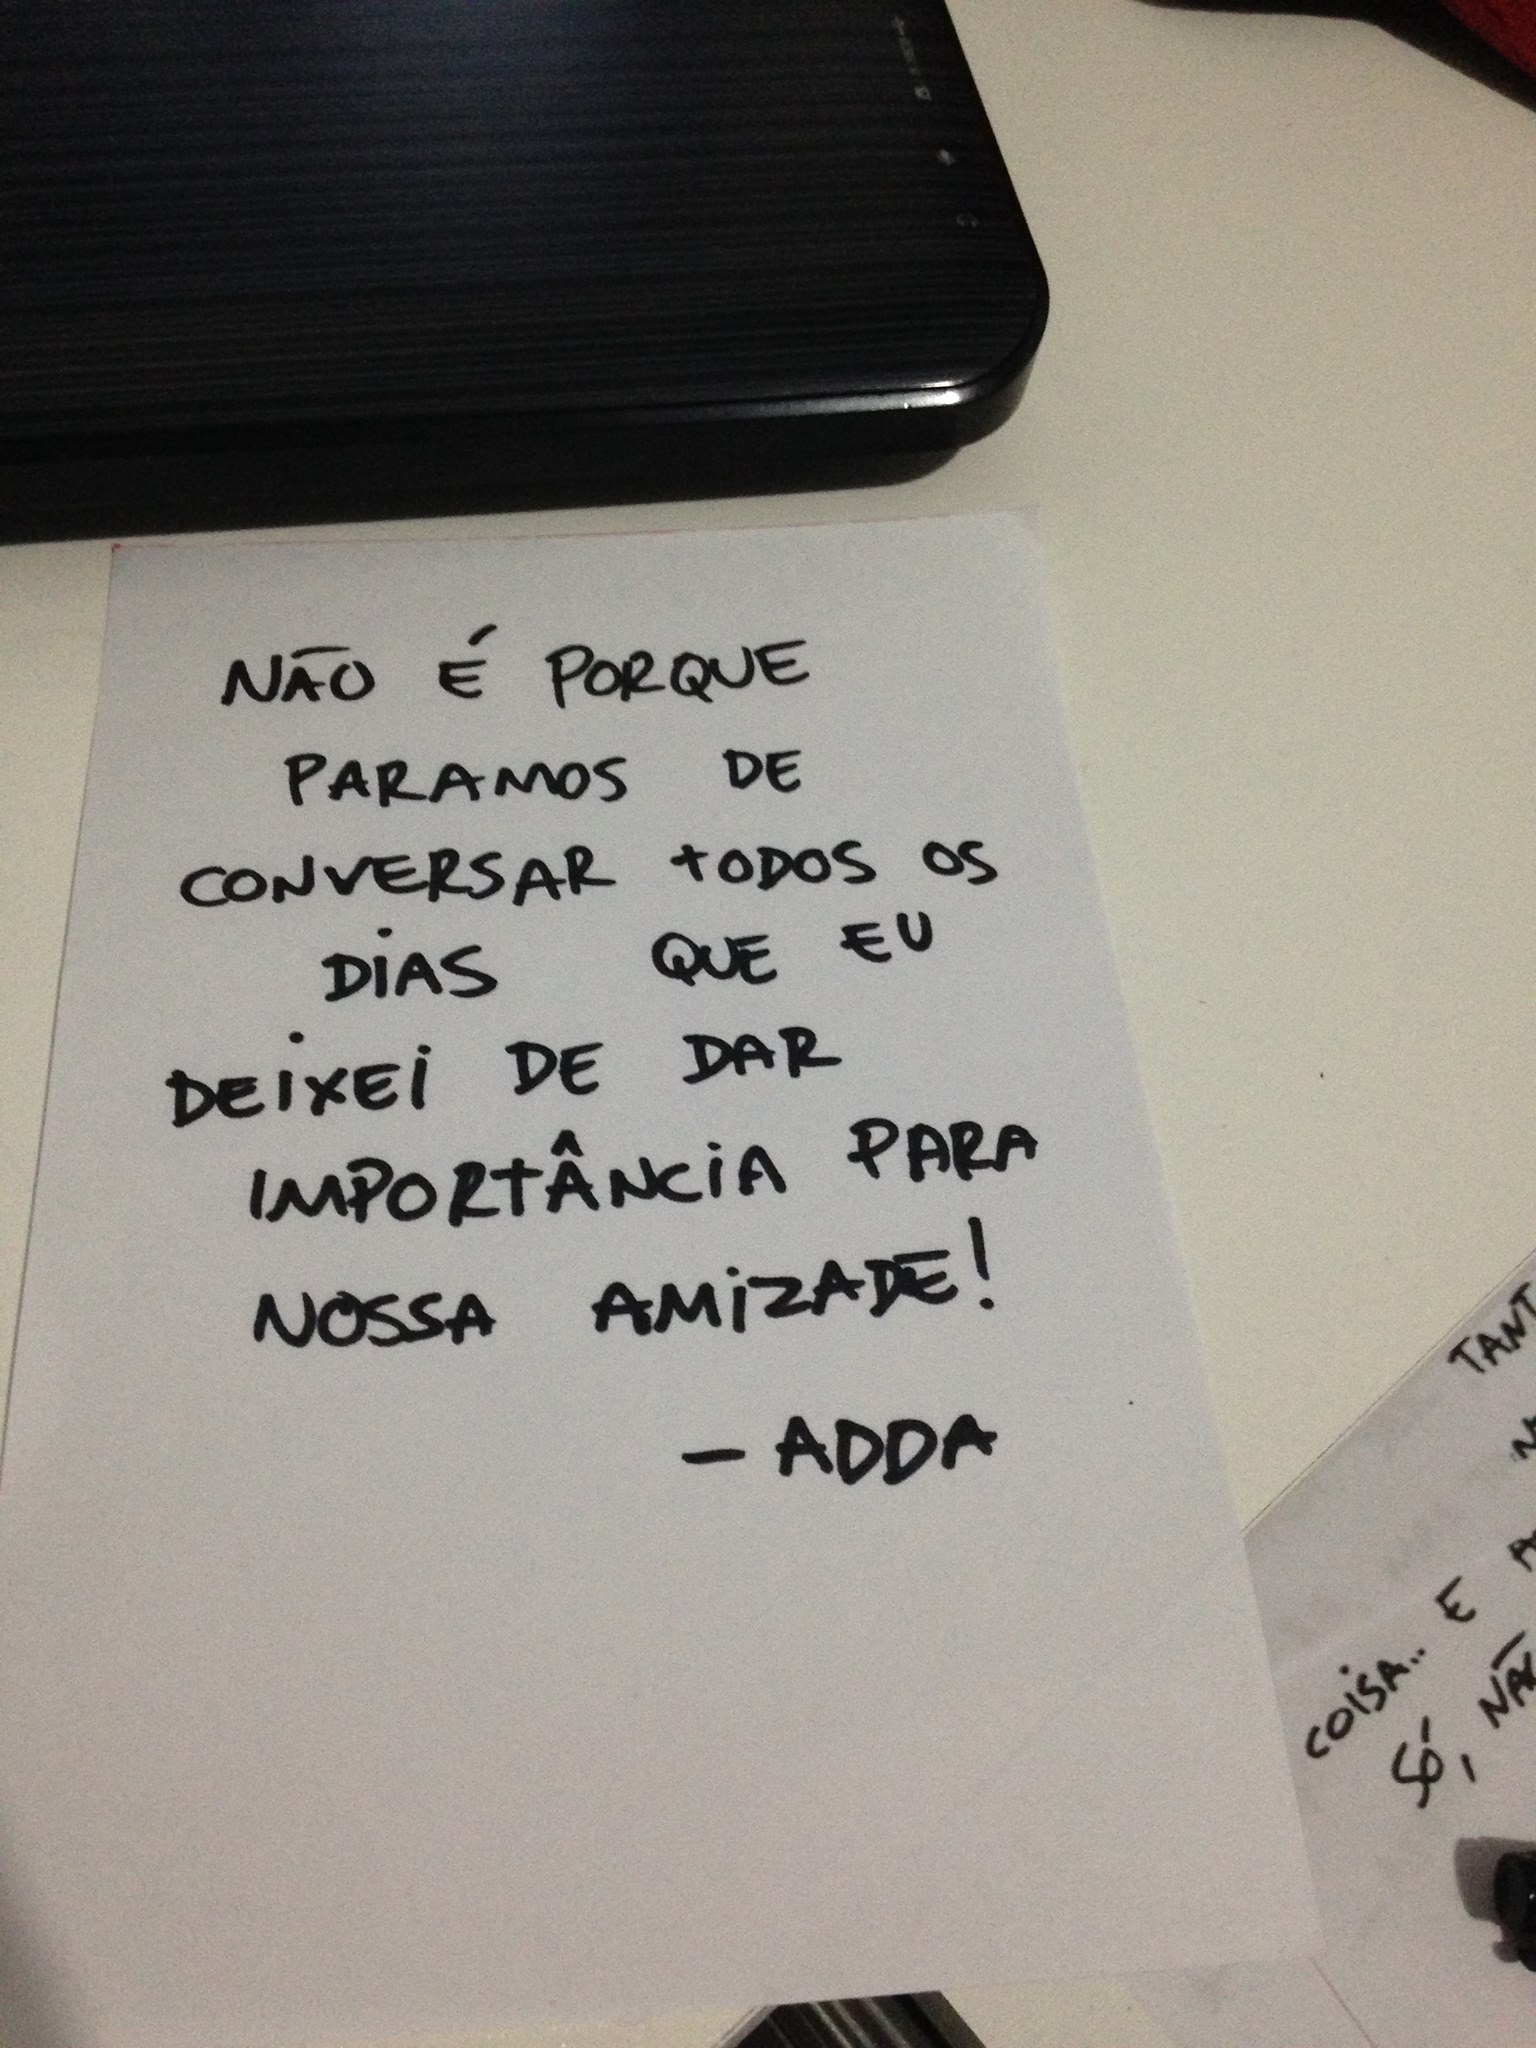 NÃO É PORQUE
PARAMOS DE
CONVERSAR TODOS OS
DIAS QUE EU
DEIXEI DE DAR
IMPORTÂNCIA PARA
NOSSA AMIZADE!
- ADDA
COISA.. E
SÓ,